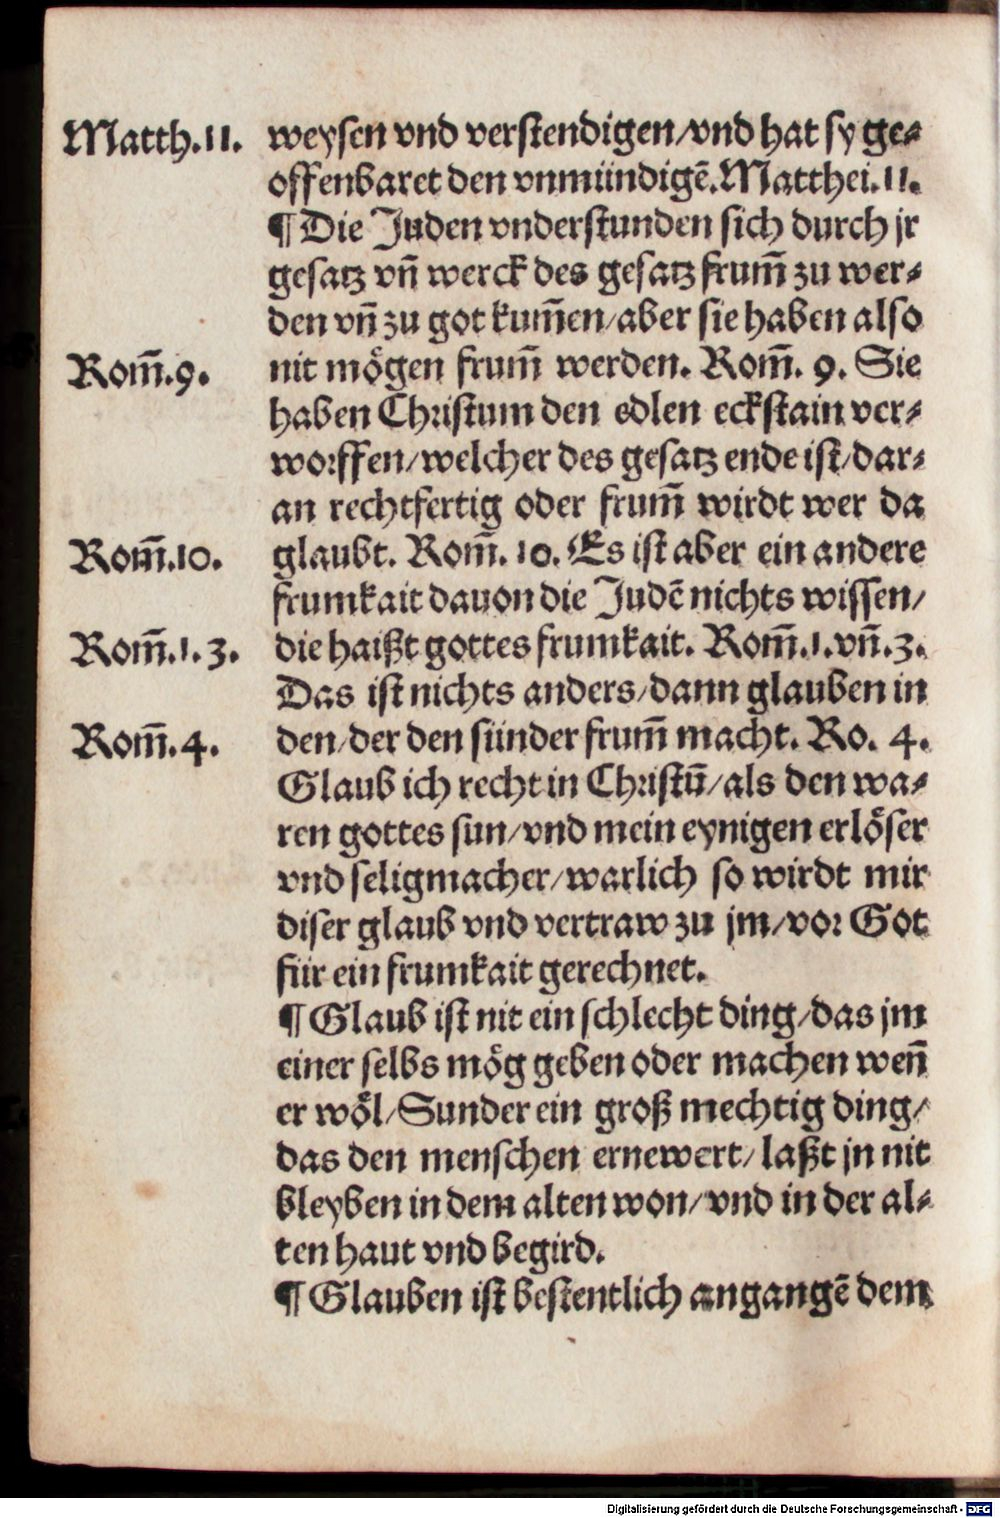 Matth.11. weysen vnd verstendigen/vnd hat sy ge⸗
offenbaret den vnmündigẽ.Matthei.11.
¶Die Juden vnderstunden sich durch jr
gesatz vñ werck des gesatz frum̃ zu wer⸗
den vñ zu got kum̃en/aber sie haben also
Rom̃.9. nit mögen frum̃ werden. Rom̃. 9. Sie
haben Christum den edlen eckstain ver⸗
worffen/welcher des gesatz ende ist/dar⸗
an rechtfertig oder frum̃ wirdt wer da
Rom̃.10. glaubt. Rom̃. 10. Es ist aber ein andere
frumkait dauon die Judẽ nichts wissen/
Rom̃.1.3. die haißt gottes frumkait. Rom̃.1.vñ.3.
Das ist nichts anders/dann glauben in
Rom̃.4. den/der den sünder frum̃ macht. Ro. 4.
Glaub ich recht in Christũ/als den wa⸗
ren gottes sun/vnd mein eynigen erlöser
vnd seligmacher/warlich so wirdt mir
diser glaub vnd vertraw zu jm/vor Got
für ein frumkait gerechnet.
¶Glaub ist nit ein schlecht ding/das jm
einer selbs mög geben oder machen weñ
er wöl/Sunder ein groß mechtig ding/
das den menschen ernewert/laßt jn nit
bleyben in dem alten won/vnd in der al⸗
ten haut vnd begird.
¶Glauben ist bestentlich angangẽ dem
Digitalisierung gefördert durch die Deutsche Forschungsgemeinschaft - DFG